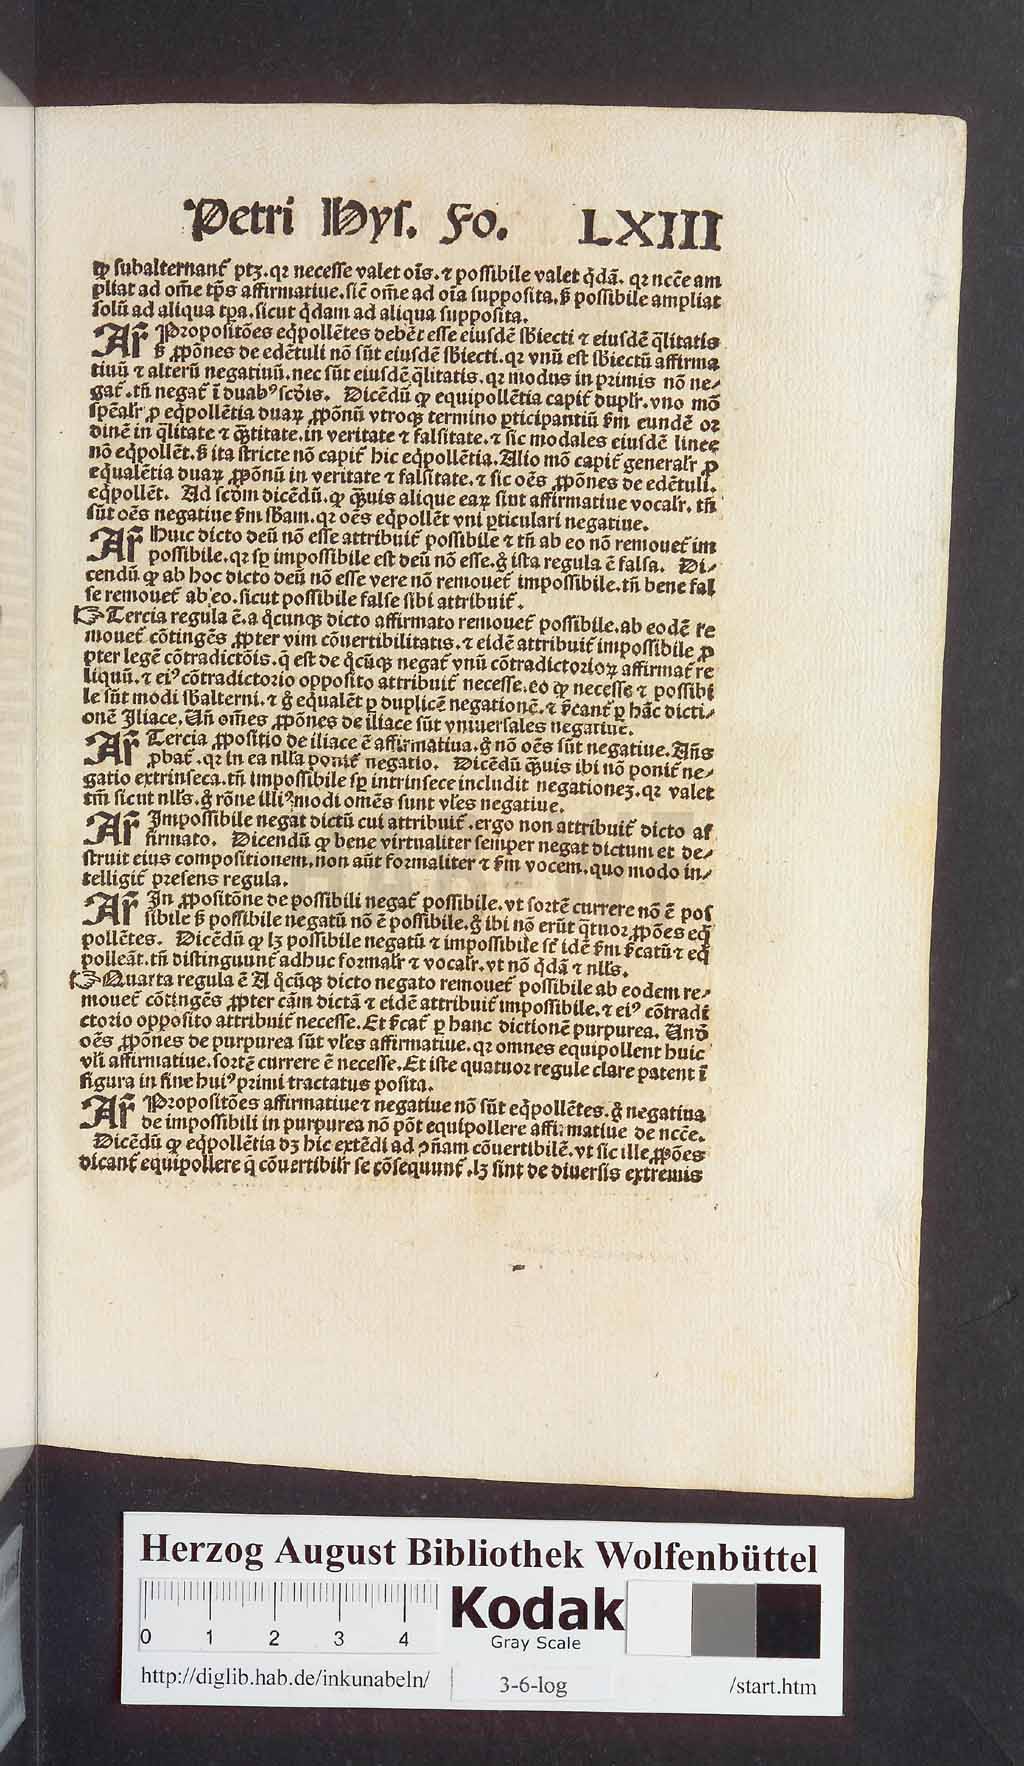 Petri Hys. Fo. LXIII
ꝙ subalternant᷑ ptꝫ. qꝛ necesse valet oı̄s. ⁊ possibile valet q̇dā. qꝛ nccē̄ am
pliat ad om̄e tp̄s affirmatiue. sic̄ om̄e ad oı̄a supposita. s̄ possibile ampliat
solū ad aliqua tꝑa. sicut q̇dam ad aliqua supposita.
Ar᷑ Propositōes eq̇pollētes debēt esse eiusdē sb̄iecti ⁊ eiusdē q̄litatis
s̄ ꝓpōnes de edētuli nō sūt eiusdē sb̄iecti. qꝛ vnū est sb̄iectū affirma
tiuū ⁊ alterū negatiuū. nec sūt eiusdē q̄litatis. qꝛ modus in primis nō ne⸗
gat᷑. tn̄ negat᷑ ī duabꝰ scd̄is. Dicēdū ꝙ equipollētia capit᷑ duplr᷑. vno mō
spēalr᷑ ꝓ eq̇pollētia duaꝝ ꝓpōnū vtroqꝫ termino ꝑticipantiū s̄m eundē oꝛ
dinē in q̄litate ⁊ q̄̄titate. in veritate ⁊ falsitate. ⁊ sic modales eiusdē linee
nō eq̇pollēt. s̄ ita stricte nō capit᷑ hic eq̇pollētia. Alio mō capit᷑ generalr᷑ ꝓ
eq̇ualētia duaꝝ ꝓpōnū in veritate ⁊ falsitate. ⁊ sic oēs ꝓpōnes de edētuli.
eq̇pollēt. Ad scd̄m dicēdū. ꝙ q̄̄uis alique eaꝝ sint affirmatiue vocalr᷑. tn̄
sūt oēs negatiue s̄m sb̄am. qꝛ oēs eq̇pollēt vni ꝑticulari negatiue.
Ar᷑ Huic dicto deū nō esse attribuit᷑ possibile ⁊ tn̄ ab eo nō remouet᷑ im
possibile. qꝛ sꝑ impossibile est deū nō esse. g̊ ista regula ē falsa. Di⸗
cendū ꝙ ab hoc dicto deū nō esse vere nō remouet᷑ impossibile. tn̄ bene fal
se remouet᷑ ab eo. sicut possibile false sibi attribuit᷑.
☞ Tercia regula ē. a q̊cunqꝫ dicto affirmato remouet᷑ possibile. ab eodē re
mouet᷑ cōtingēs ꝓpter vim cōuertibilitatis. ⁊ eidē attribuit᷑ impossibile ꝓ
pter legē cōtradictōis. q̄ est de q̊cūqꝫ negat᷑ vnū cōtradictorioꝝ affirmat᷑ re
liquū. ⁊ eiꝰ cōtradictorio opposito attribuit᷑ necesse. eo ꝙ necesse ⁊ possibi
le sūt modi sb̄alterni. ⁊ g̊ equalēt ꝑ duplicē negationē. ⁊ s̄cant᷑ ꝑ hāc dicti⸗
onē Iliace. Un̄ om̄es ꝓpōnes de iliace sūt vniuersales negatiue.
Ar᷑ Tercia ꝓpositio de iliace ē affirmatiua. g̊ nō oēs sūt negatiue. An̄s
ꝓbat᷑. qꝛ in ea nll̄a ponit᷑ negatio. Dicēdū q̄̄uis ibi nō ponit᷑ ne⸗
gatio extrinseca. tn̄ impossibile sꝑ intrinsece includit negationeꝫ. qꝛ valet
tm̄ sicut nll̄s. g̊ rōne illiꝰ modi omēs sunt vl̄es negatiue.
Ar᷑ Impossibile negat dictū cui attribuit᷑. ergo non attribuit᷑ dicto af
firmato. Dicendū ꝙ bene virtualiter semper negat dictum et de⸗
struit eius compositionem. non aūt formaliter ⁊ s̄m vocem. quo modo in⸗
telligit᷑ presens regula.
Ar᷑ In ꝓpositōne de possibili negat᷑ possibile. vt sortē currere nō ē pos
sibile s̄ possibile negatū nō ē possibile. g̊ ibi nō erūt q̄tuor ꝓpōes eq̇
pollētes. Dicēdū ꝙ lꝫ possibile negatū ⁊ impossibile sc̄ idē s̄m s̄catū ⁊ eq̇
polleāt. tn̄ distinguunt᷑ adhuc formalr᷑ ⁊ vocalr᷑. vt nō q̇dā ⁊ nll̄s.
☞ Quarta regula ē A q̊cūqꝫ dicto negato remouet᷑ possibile ab eodem re⸗
mouet᷑ cōtingēs ꝓpter cām dictā ⁊ eidē attribuit᷑ impossibile. ⁊ eiꝰ cōtradi
ctorio opposito attribuit᷑ necesse. Et s̄cat᷑ ꝑ hanc dictionē purpurea. Und̄
oēs ꝓpōnes de purpurea sūt vl̄es affirmatiue. qꝛ omnes equipollent huic
vl̄i affirmatiue. sortē currere ē necesse. Et iste quatuor regule clare patent ī
figura in fine huiꝰ primi tractatus posita.
Ar᷑ Propositōes affirmatiue ⁊ negatiue nō sūt eq̇pollētes. g̊ negatiua
de impossibili in purpurea nō pōt equipollere affirmatiue de nccē̄.
Dicēdū ꝙ eq̇pollētia dꝫ hic extēdi ad ꝯn̄am cōuertibilē. vt sic ille ꝓpōes
dicant᷑ equipollere q̄ cōuertibilr᷑ se cōsequunt᷑. lꝫ sint de diuersis extremis
Herzog August Bibliothek Wolfenbüttel
0 1 2 3 4
Kodak
Gray Scale
http://diglib.hab.de/inkunabeln/ 3-6-log /start.htm